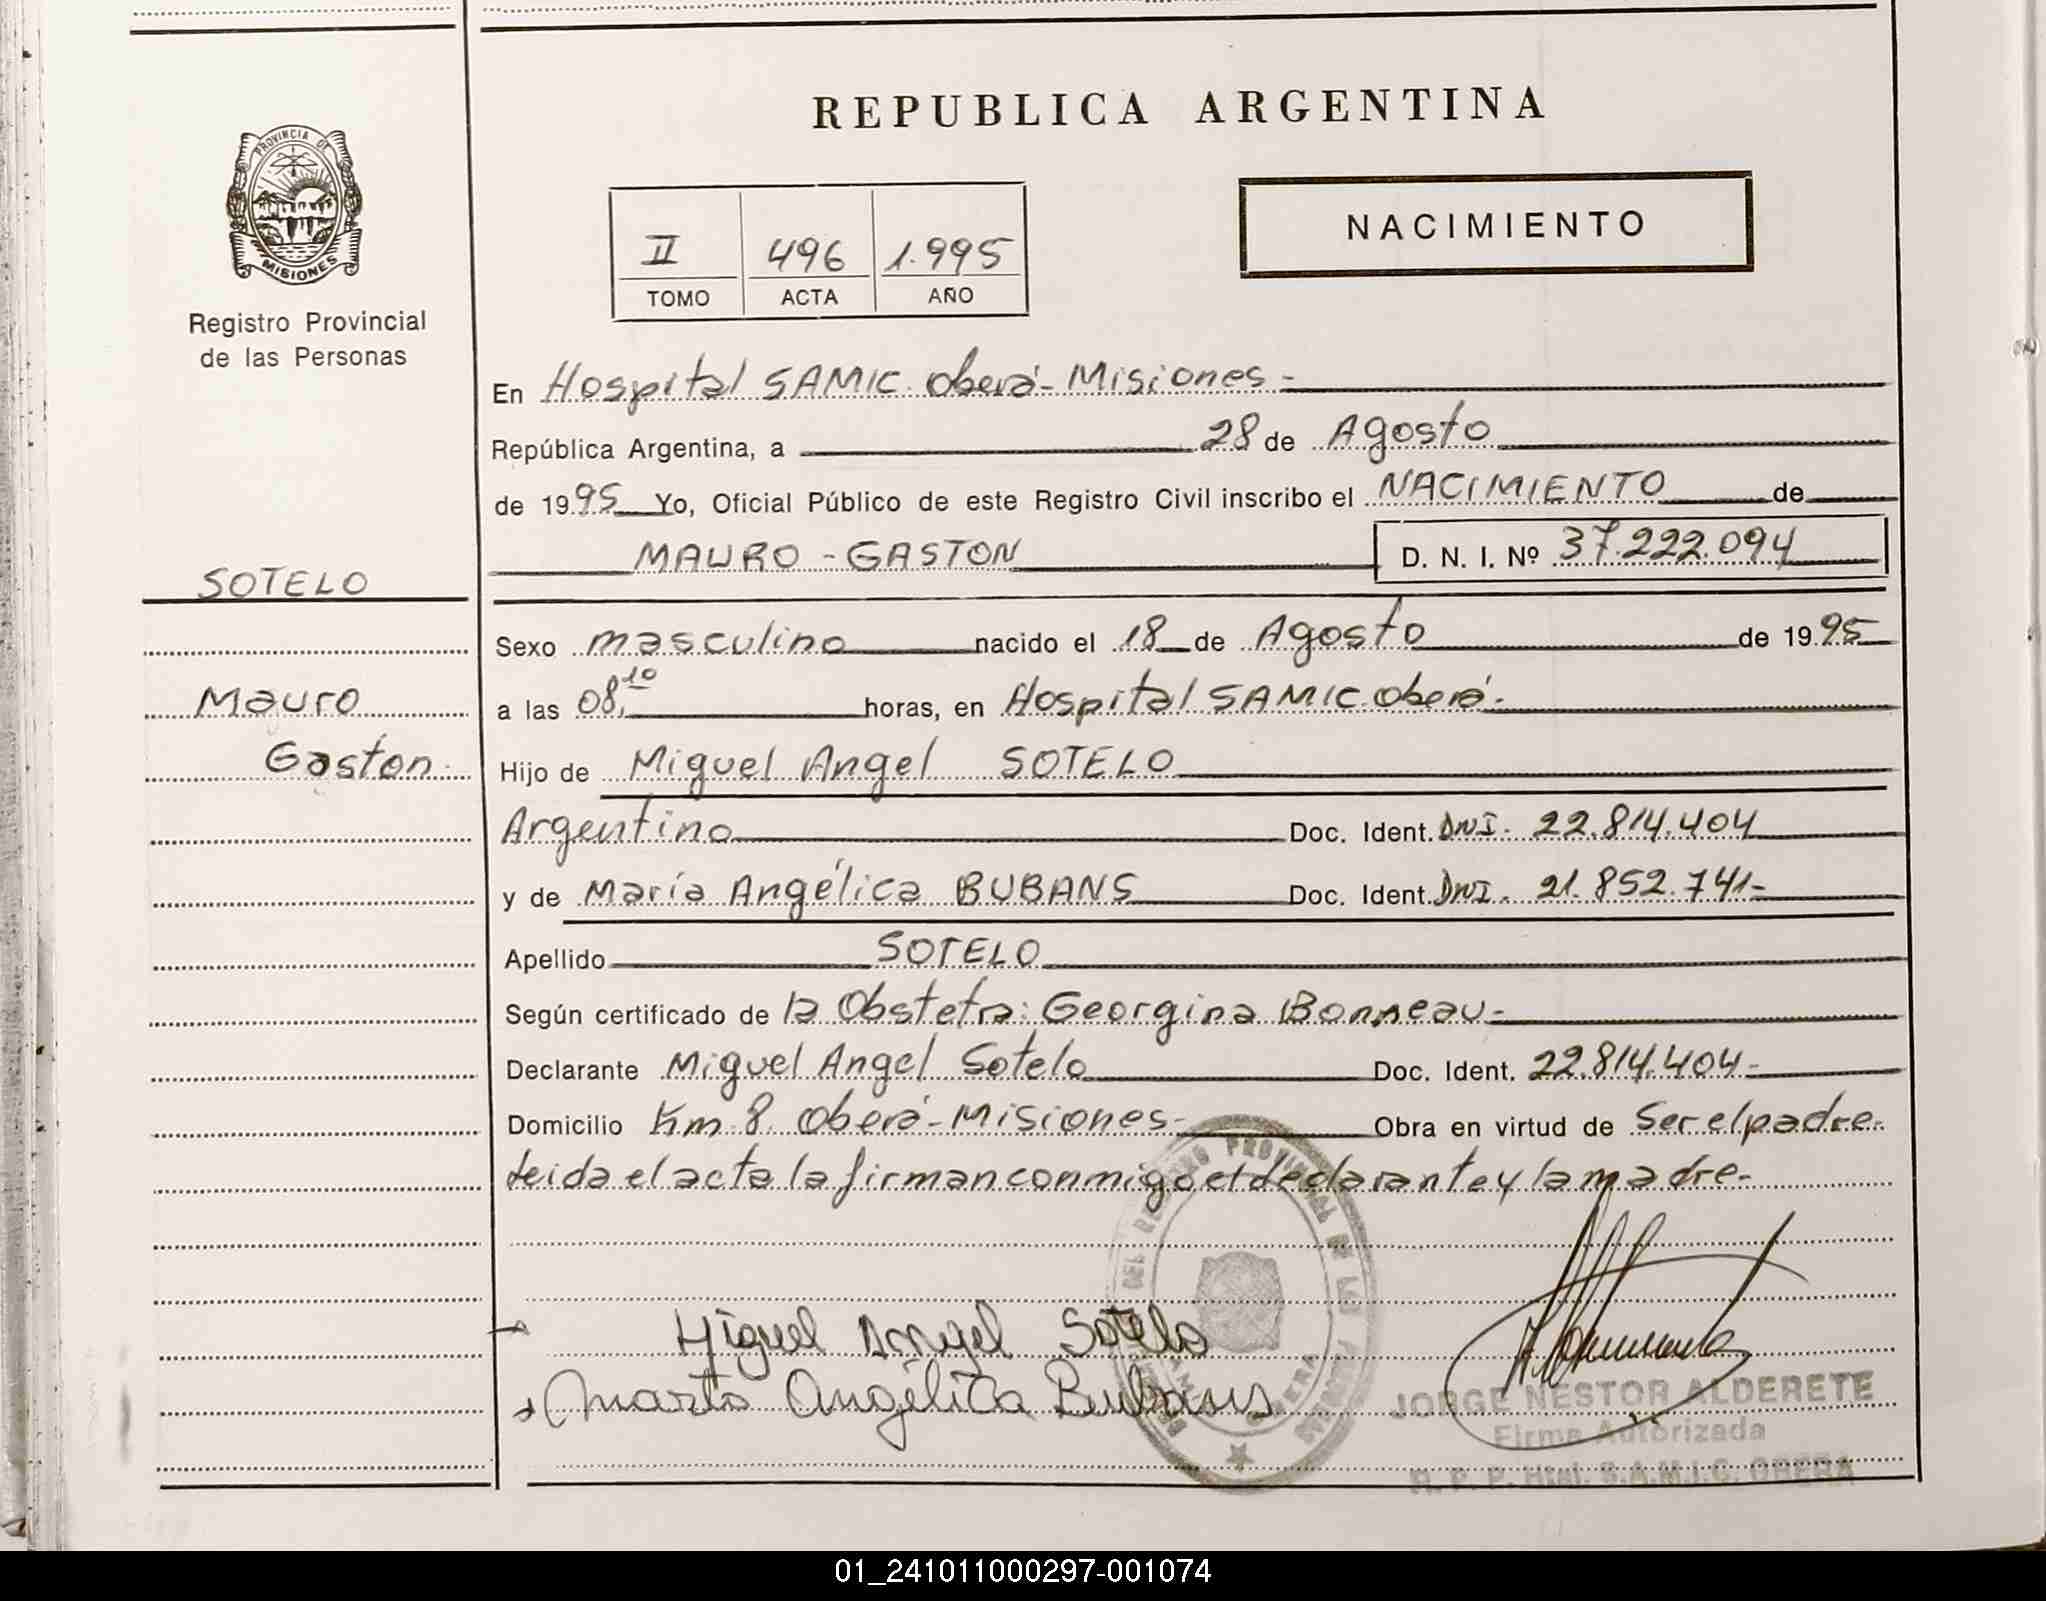 REPUBLICA ARGENTINA
PROVINCIA DE
MISIONES
Registro Provincial
de las Personas
NACIMIENTO
II 496 1.995
TOMO ACTA AÑO
En Hospital SAMIC. Oberá - Misiones -
República Argentina, a 28 de Agosto
de 1995 Yo, Oficial Público de este Registro Civil inscribo el NACIMIENTO de
MAURO - GASTON D. N. I. Nº 37.222.094
SOTELO
Mauro
Gaston.
Sexo masculino nacido el 18 de Agosto de 1995
a las 08,10 horas, en Hospital SAMIC. Oberá.
Hijo de Miguel Angel SOTELO
Argentino Doc. Ident. DNI. 22.814.404
y de María Angélica BUBANS Doc. Ident. DNI. 21.852.741-
Apellido SOTELO
Según certificado de la Obstetra: Georgina Bonneau-
Declarante Miguel Angel Sotelo Doc. Ident. 22.814.404-
Domicilio Km 8. Oberá - Misiones- Obra en virtud de Ser el padre-
leida el acta la firman conmigo el declarante y la madre-
Miguel Angel Sotelo
Angélica Bubans
JORGE NESTOR ALDERETE
Firma Autorizada
R. P. P. Htal. S.A.M.I.C. OBERA
01_241011000297-001074